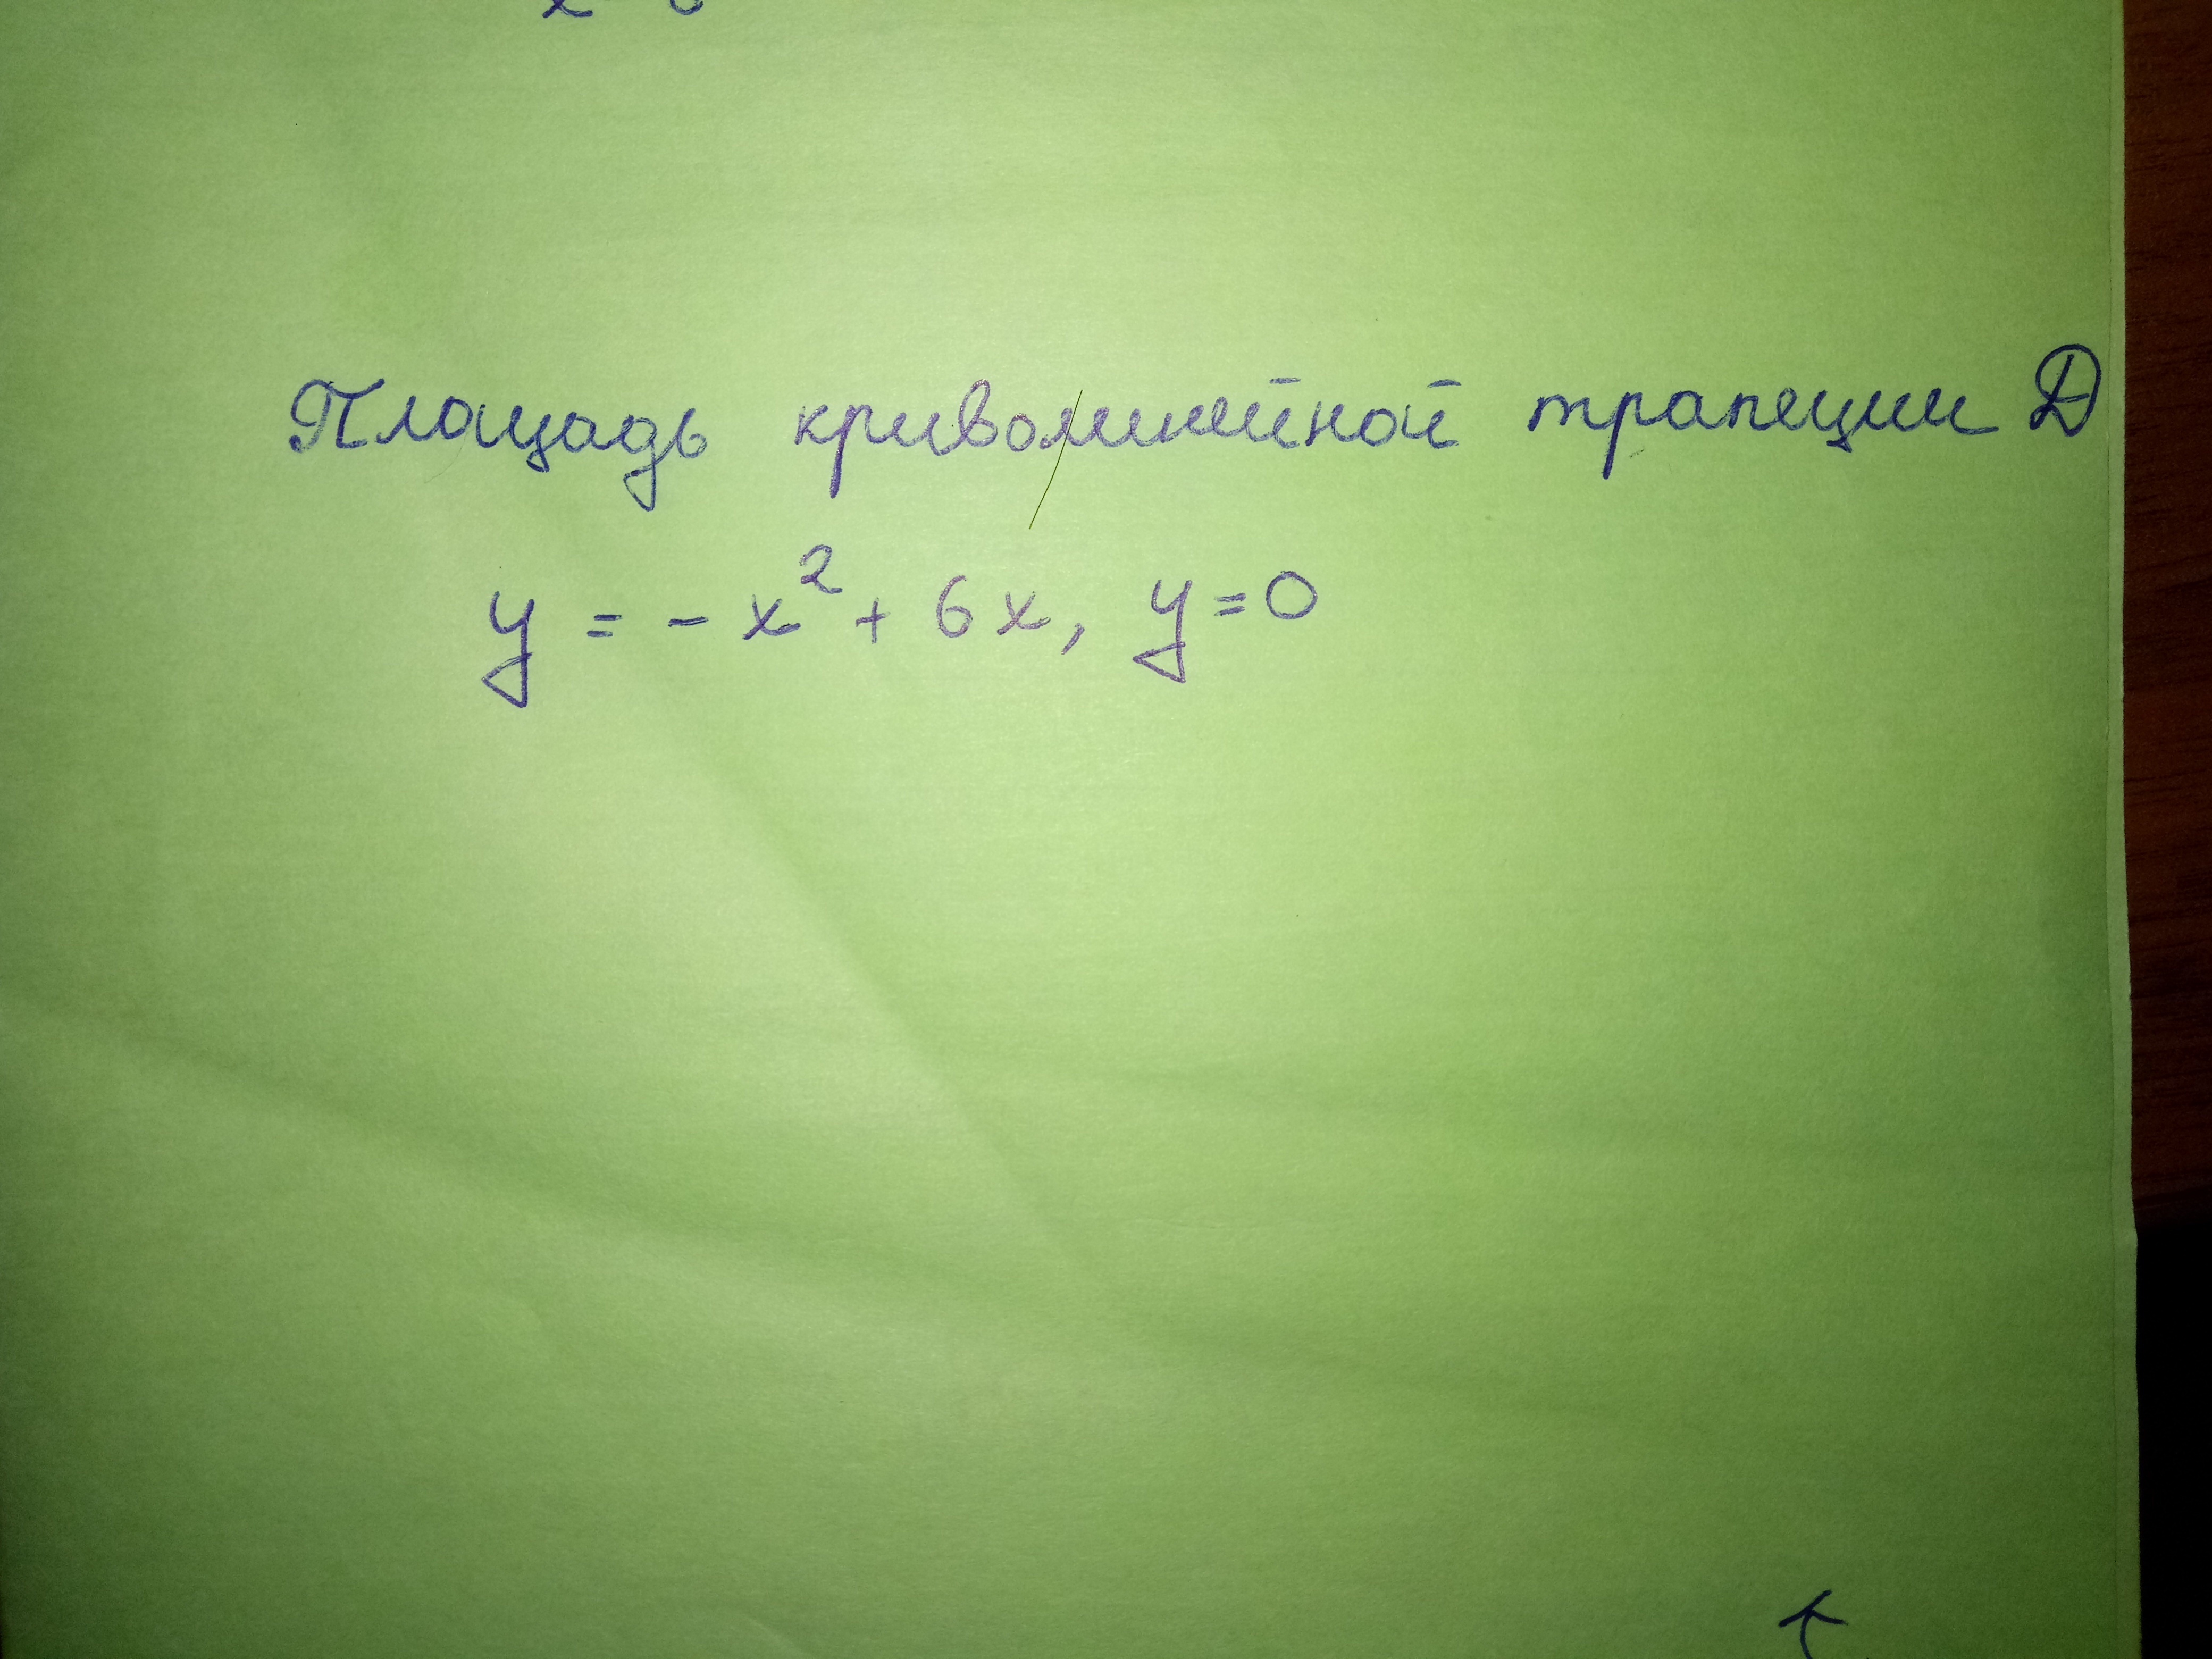 Площадь криволинейной трапеции D
y = - x² + 6x, y = 0